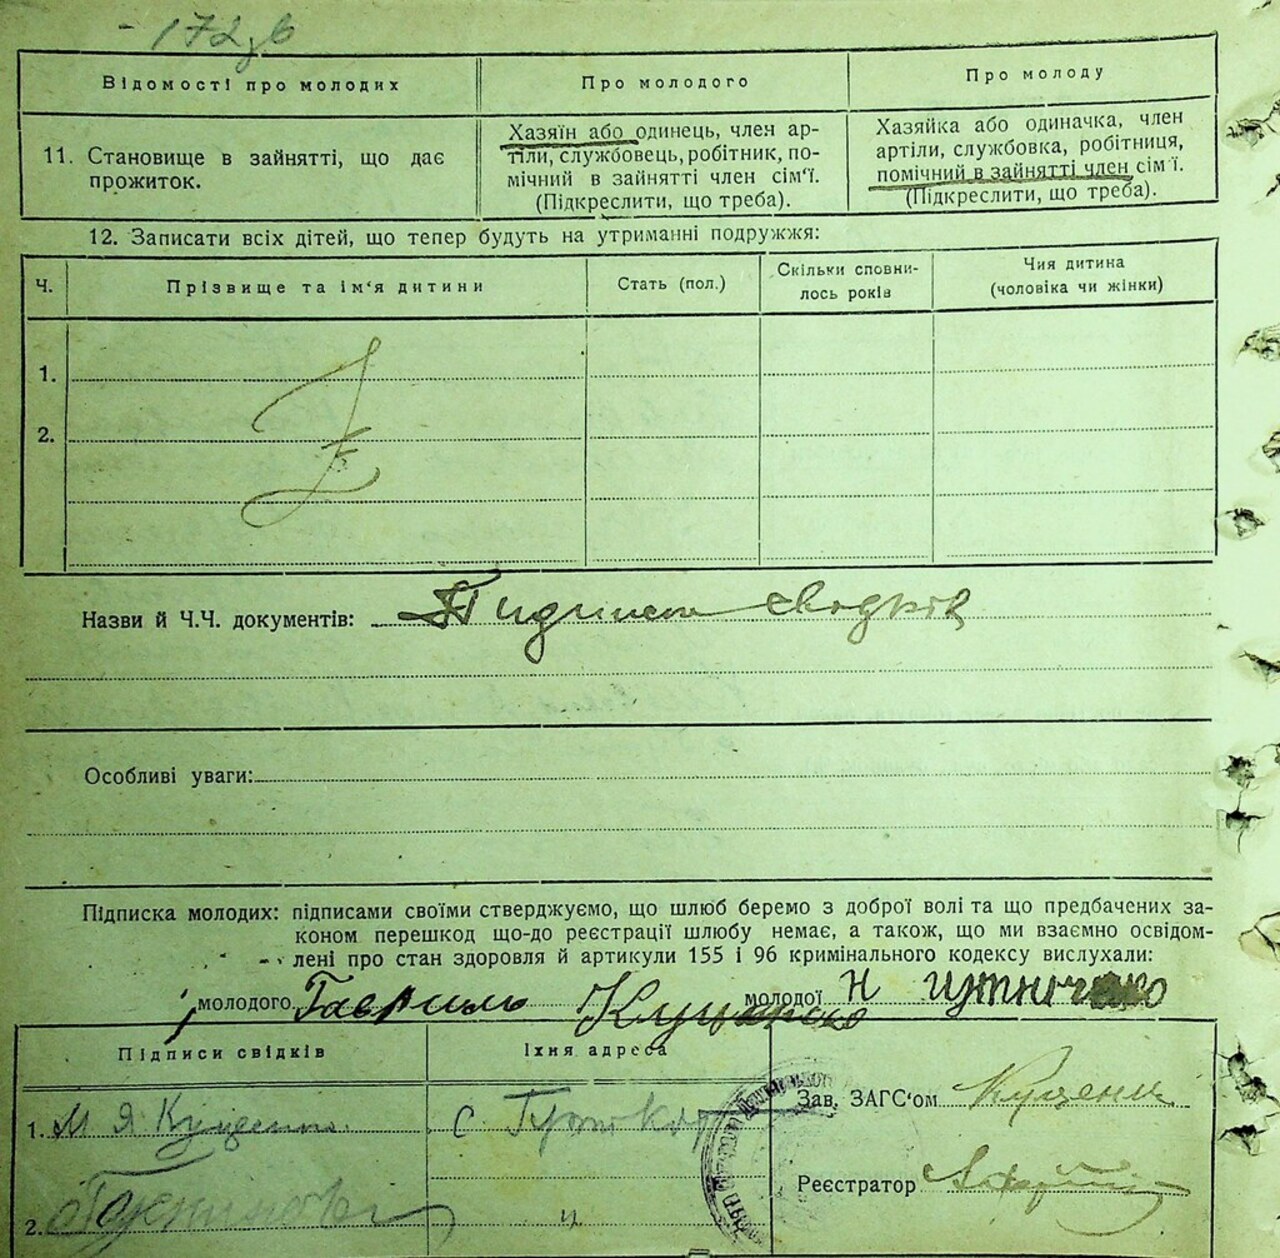 172 зв
Відомості про молодих
Про молодого
Про молоду
11. Становище в зайнятті, що дає
прожиток.
Хазяїн або одинець, член ар-
тіли, службовець, робітник, по-
мічний в зайнятті член сім'ї.
(Підкреслити, що треба).
Хазяйка або одиначка, член
артіли, службовка, робітниця,
помічний в зайнятті член сім'ї.
(Підкреслити, що треба).
12. Записати всіх дітей, що тепер будуть на утриманні подружжя:
Ч.
Прізвище та ім'я дитини
Стать (пол.)
Скільки сповни-
лось років
Чия дитина
(чоловіка чи жінки)
1.
2.
Назви й Ч.Ч. документів:
Особливі уваги:
Підписка молодих: підписами своїми стверджуємо, що шлюб беремо з доброї волі та що предбачених за-
коном перешкод що-до реєстрації шлюбу немає, а також, що ми взаємно освідом-
лені про стан здоровля й артикули 155 і 96 кримінального кодексу вислухали:
молодого Гавриль Куценко молодої Н
Підписи свідків
Їхня адреса
Зав. ЗАГС'ом Куценко
1. М Я Куценко
с.
Реєстратор
2.